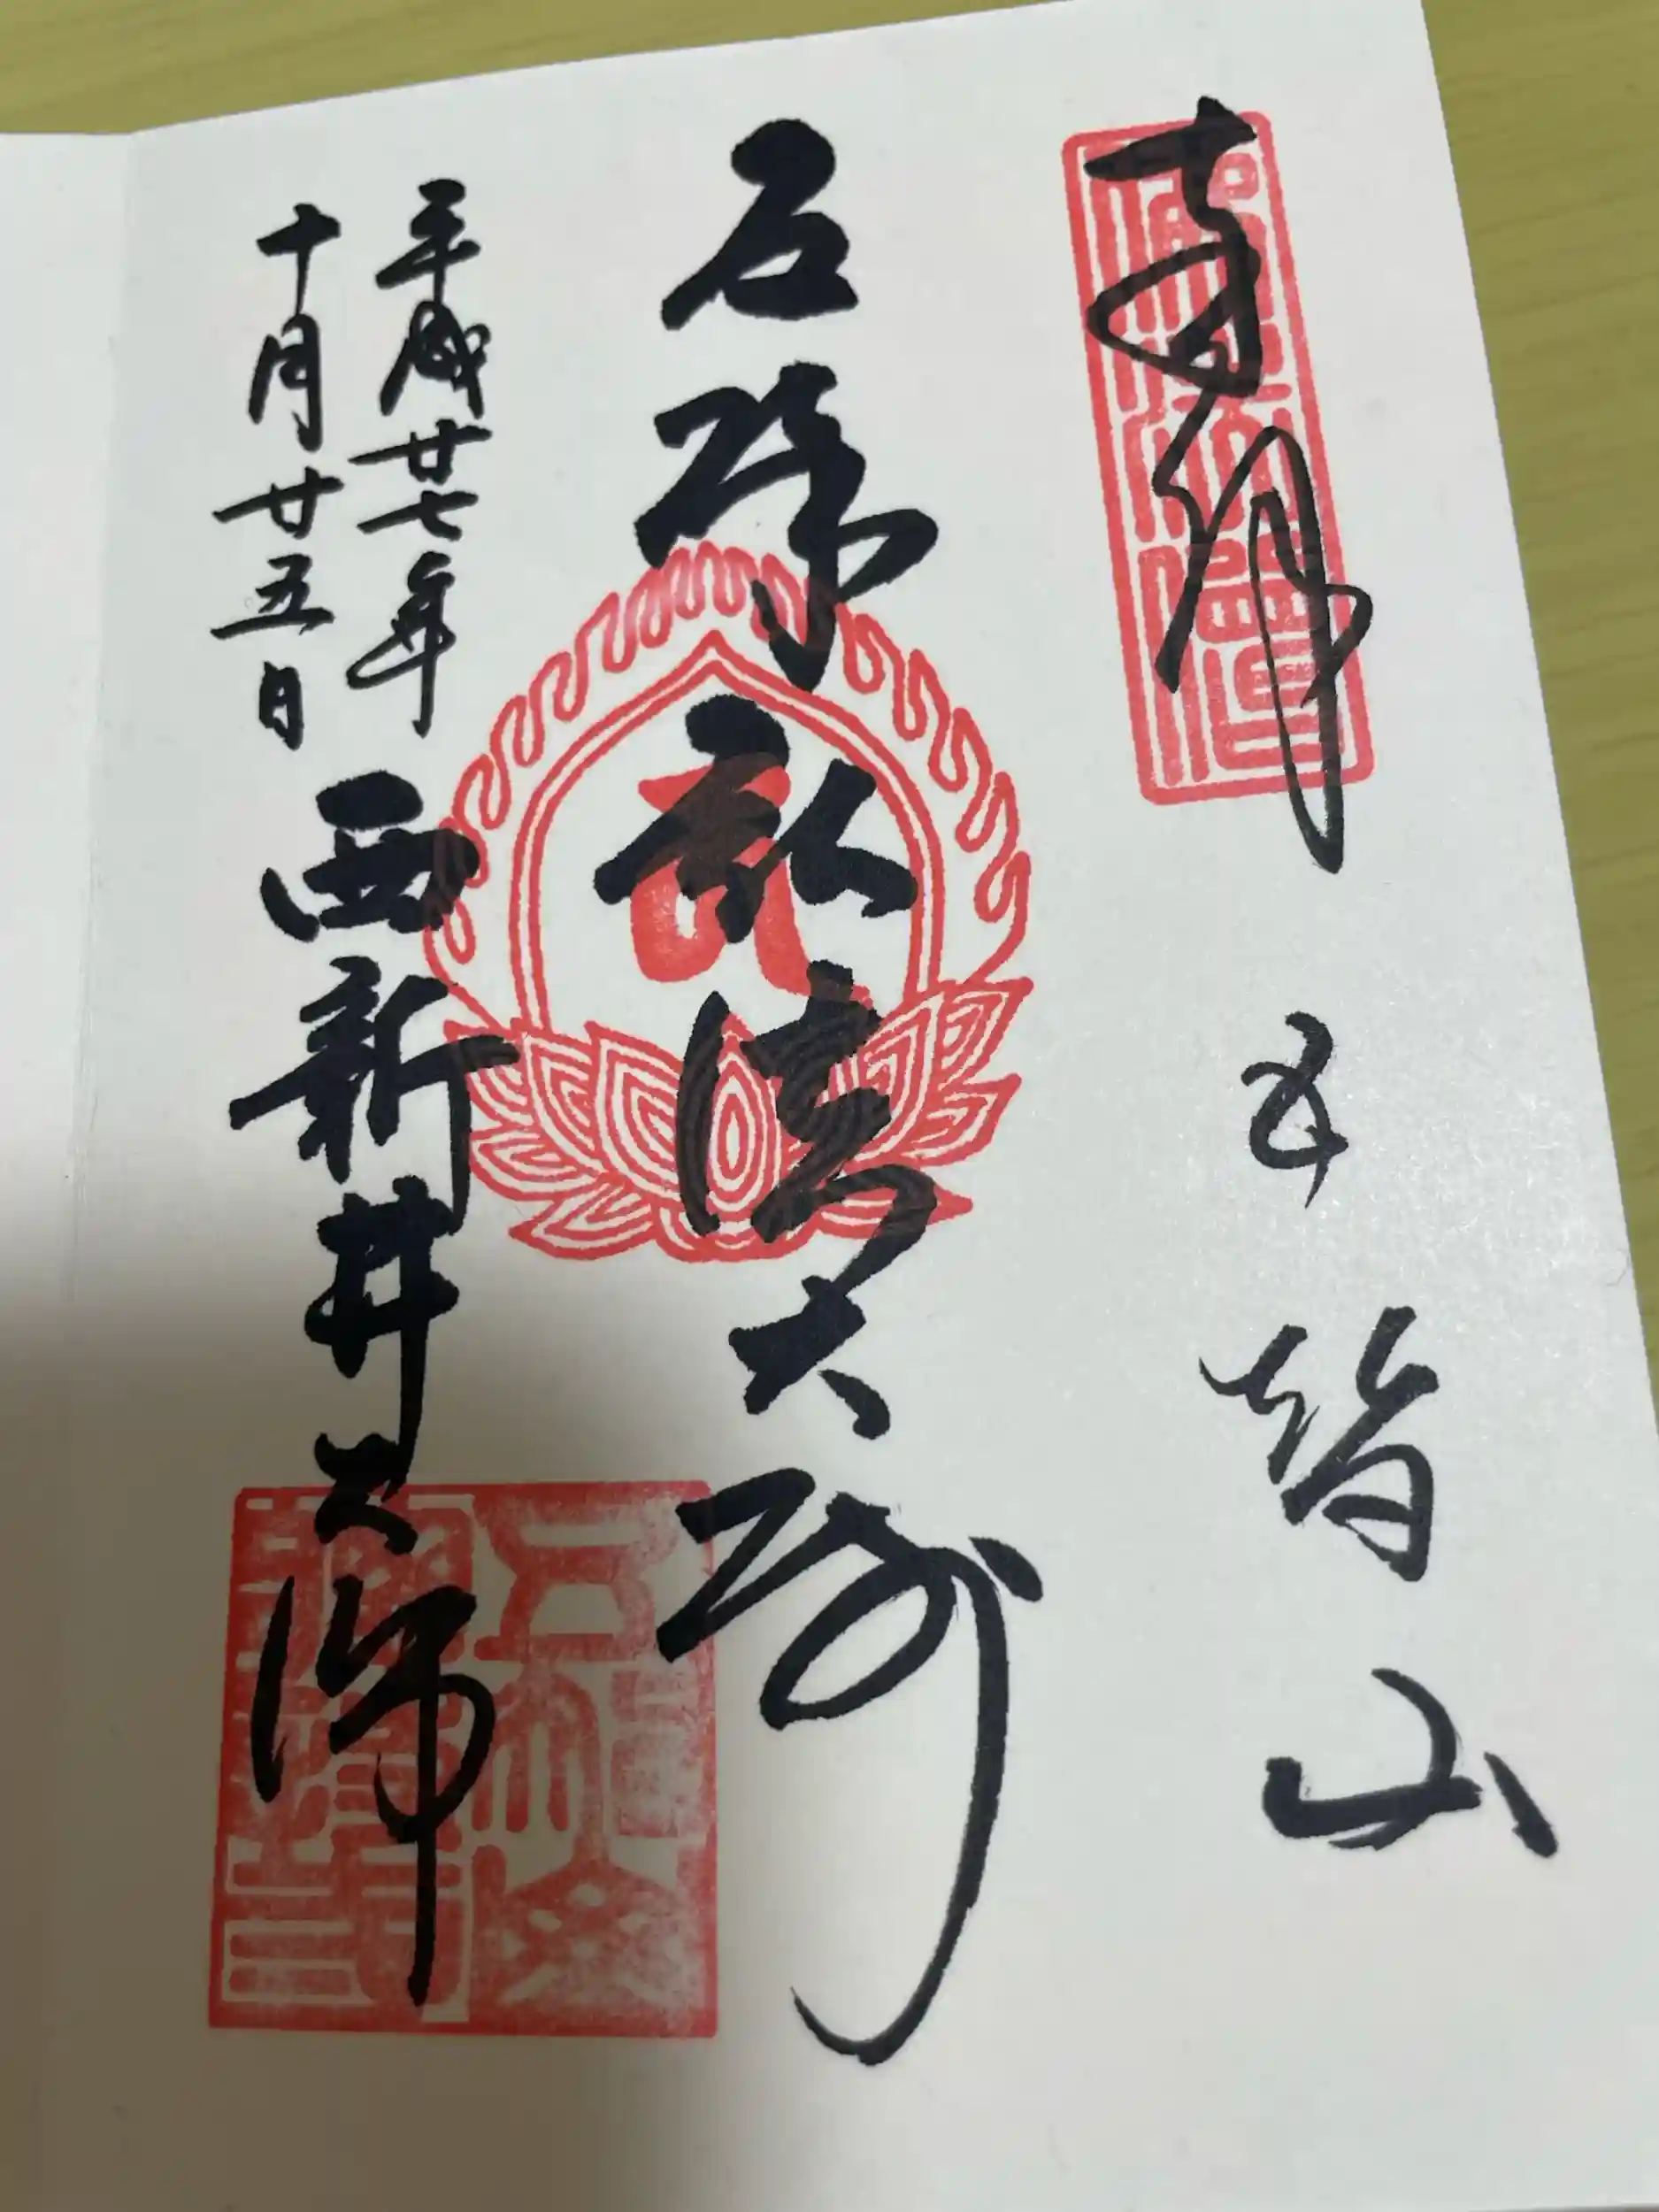 奉拝 五智山
厄除弘法大師
平成廿七年
十月廿五日
西新井大師